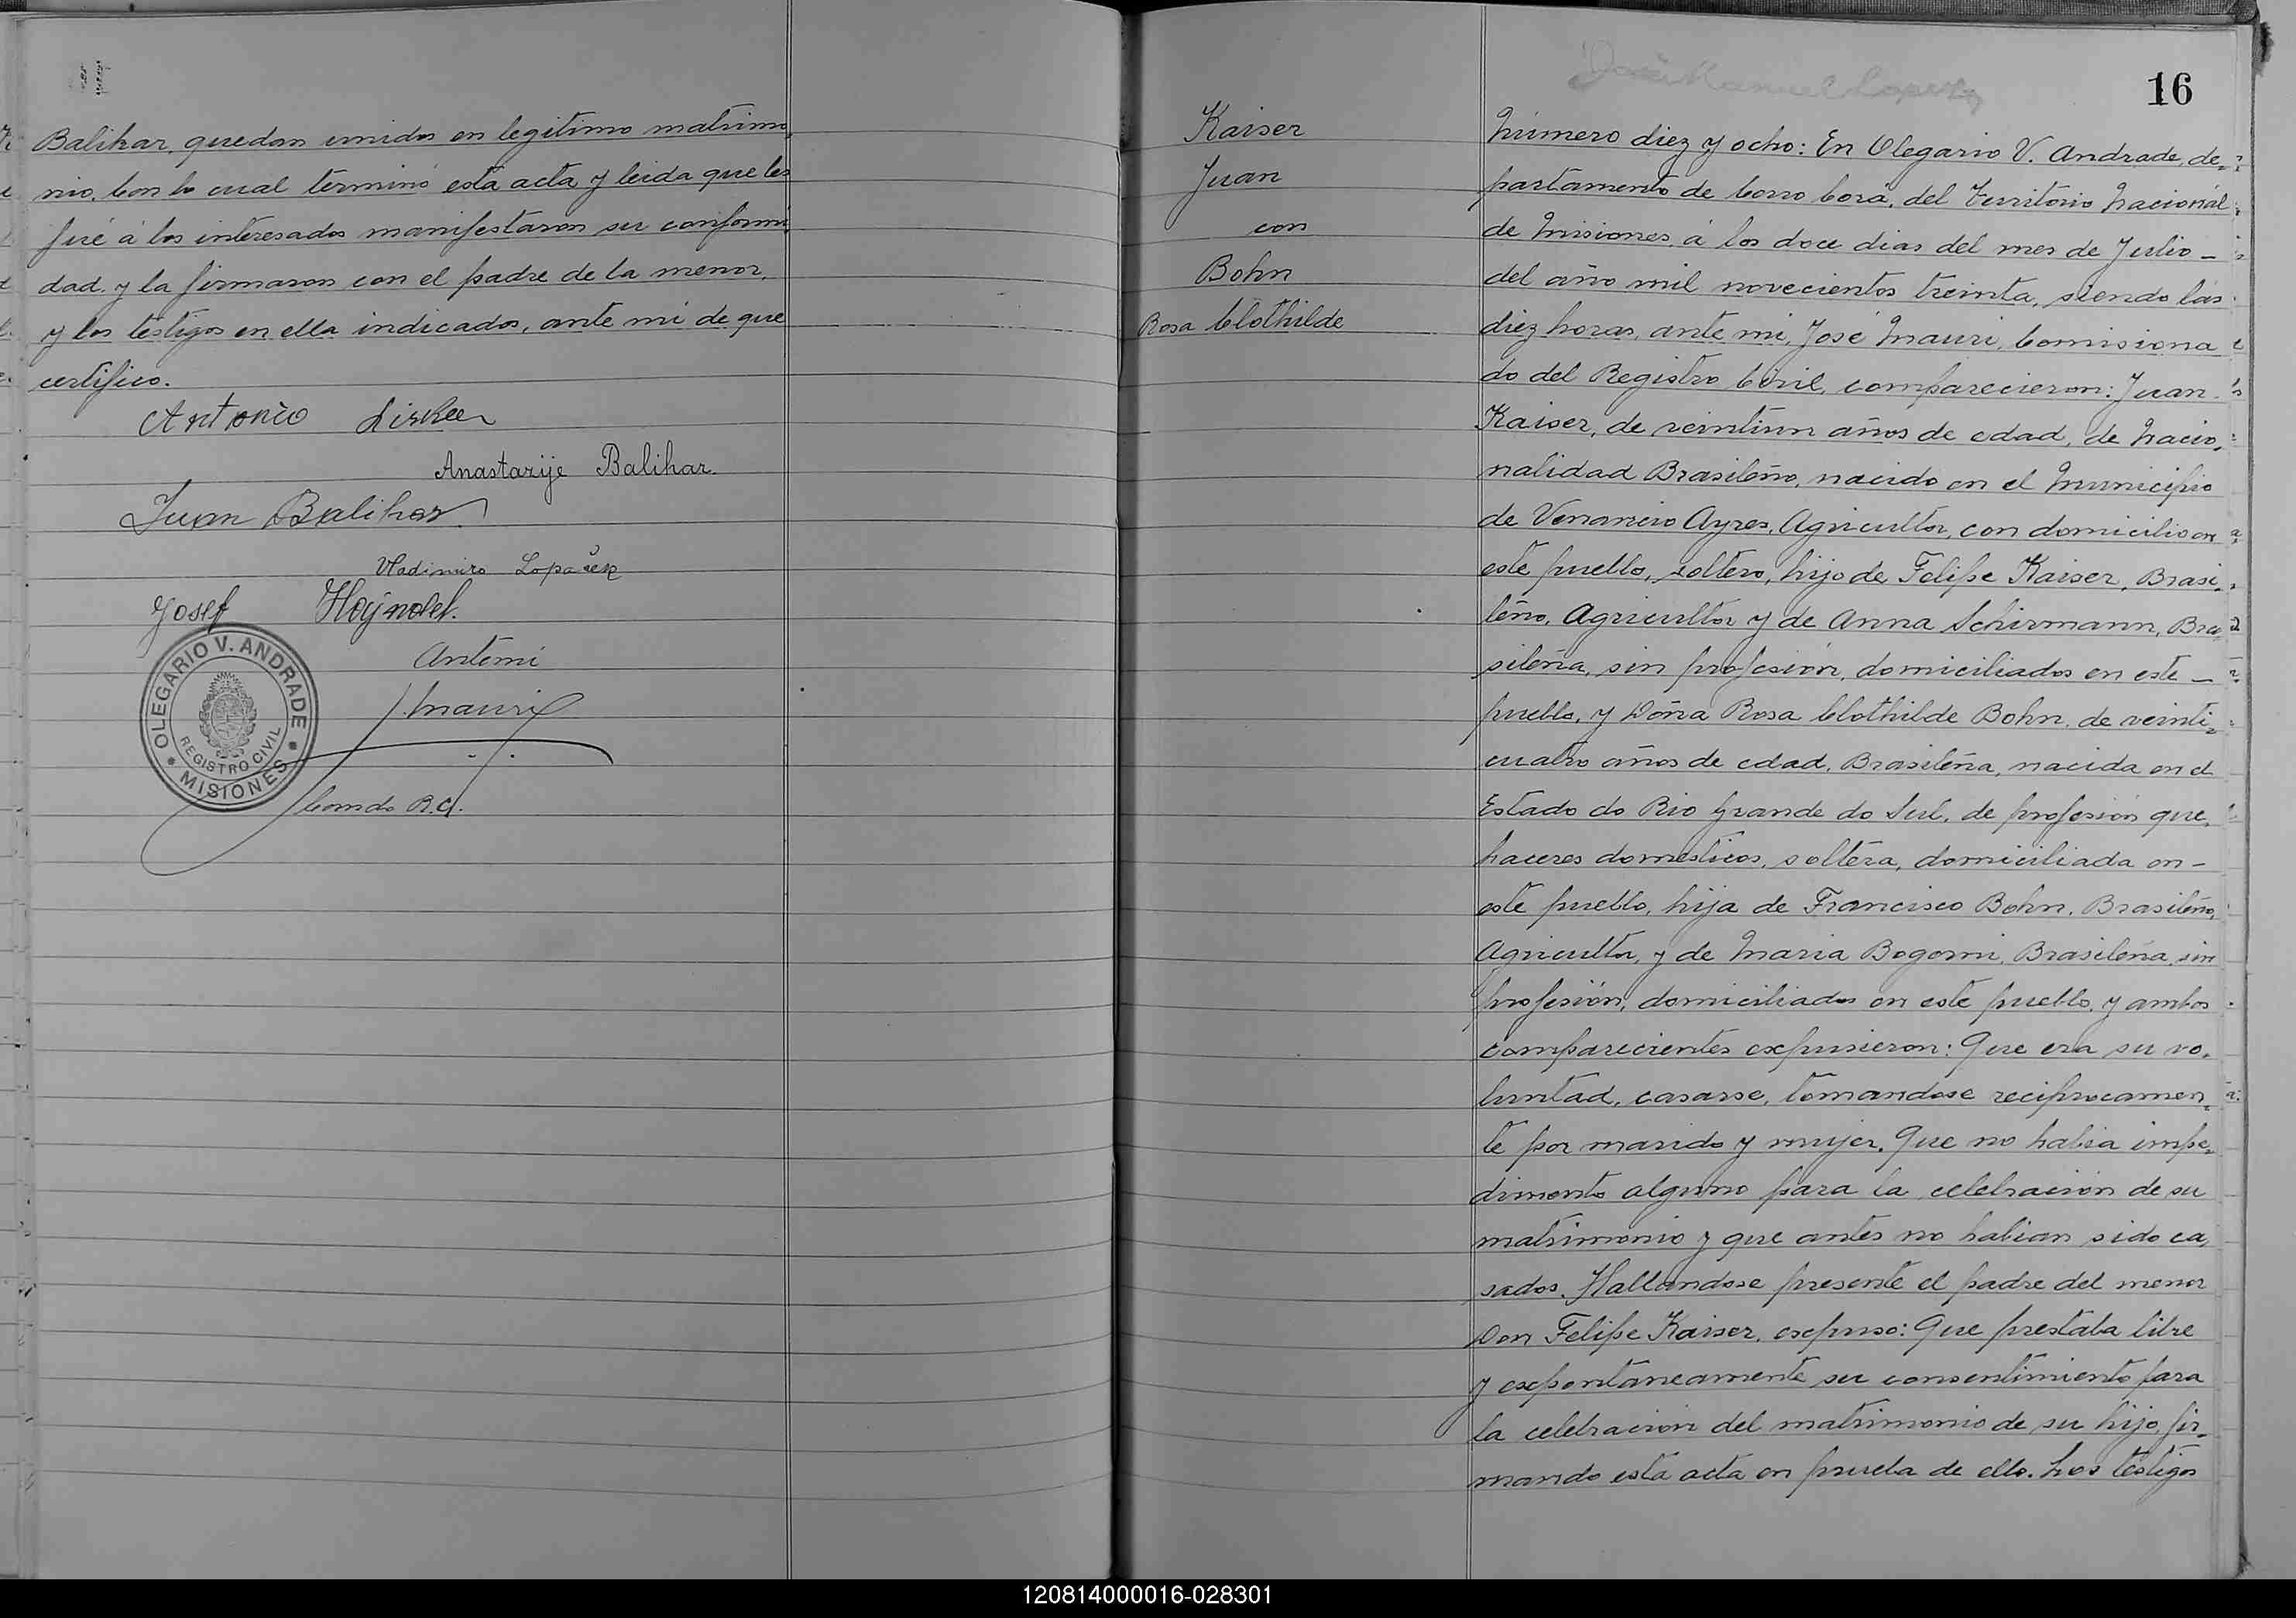 Balihar, quedan unidos en legitimo matrimo,
nio. Con lo cual terminó esta acta y leida que les
fué á los interesados manifestaron su conformi,
dad y la firmaron con el padre de la menor,
y los testigos en ella indicados, ante mi de que
certifico.
Antonio
Anastazije Balihar.
Juan Balihar
Vladimiro Lopaček
Josef
Antemi
J. Mauri
OLEGARIO V. ANDRADE
REGISTRO CIVIL
MISIONES
Comdo R.C.
16
Kaiser
Juan
con
Bohn
Rosa Clothilde
Número diez y ocho: En Olegario V. Andrade, de,
partamento de Cerro Corá, del Territorio Nacional
de Misiones, á los doce dias del mes de Julio –
del año mil novecientos treinta, siendo las
diez horas, ante mi, José Mauri, Comisiona
do del Registro Civil, comparecieron: Juan
Kaiser, de veintiun años de edad, de Nacio,
nalidad Brasileño, nacido en el Municipio
de Venancio Ayres, Agricultor, con domicilio en
este pueblo, soltero, hijo de Felipe Kaiser, Brasi,
leño, Agricultor y de Anna Schirmann, Bra,
sileña, sin profesión, domiciliados en este –
pueblo, y Doña Rosa Clothilde Bohn, de veinti,
cuatro años de edad, Brasileña, nacida en el
Estado do Rio Grande do Sul, de profesión que,
haceres domesticos, soltera, domiciliada en –
este pueblo, hija de Francisco Bohn, Brasileño,
Agricultor, y de Maria Bogorni, Brasileña, sin
profesión, domiciliados en este pueblo, y ambos
comparecientes expusieron: Que era su vo,
luntad, casarse, tomandose reciprocamen,
te por marido y mujer. Que no habia impe,
dimento alguno para la celebración de su
matrimonio y que antes no habian sido ca,
sados. Hallandose presente el padre del menor
Don Felipe Kaiser, expuso: Que prestaba libre
y expontaneamente su consentimiento para
la celebración del matrimonio de su hijo, fir,
mando esta acta en prueba de ello. Los testigos
120814000016-028301